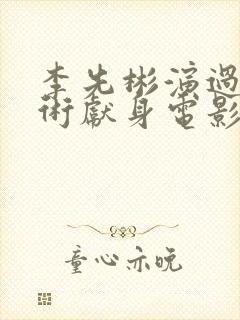 李先彬演過
術獻身電影
童心亦晚